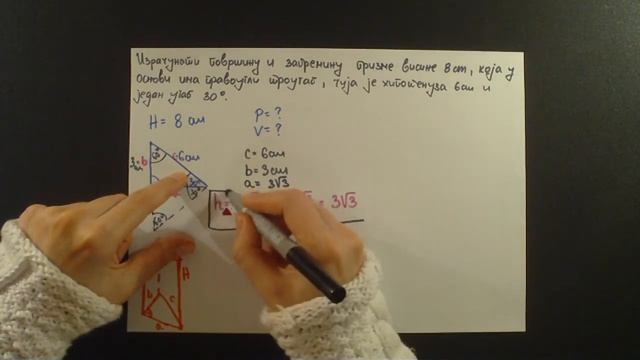 Израчунати површину и запремину призме висине 8cm, која у
основи има правоугли троугао, чија је хипотенуза 6cm и
један угао 30°.
H = 8 cm
P = ?
V = ?
c = 6cm
b = 3cm
a = 3√3
3 = b
cm
c=6cm
60°
30°
60°
h = = 3√3
H
b
c
a